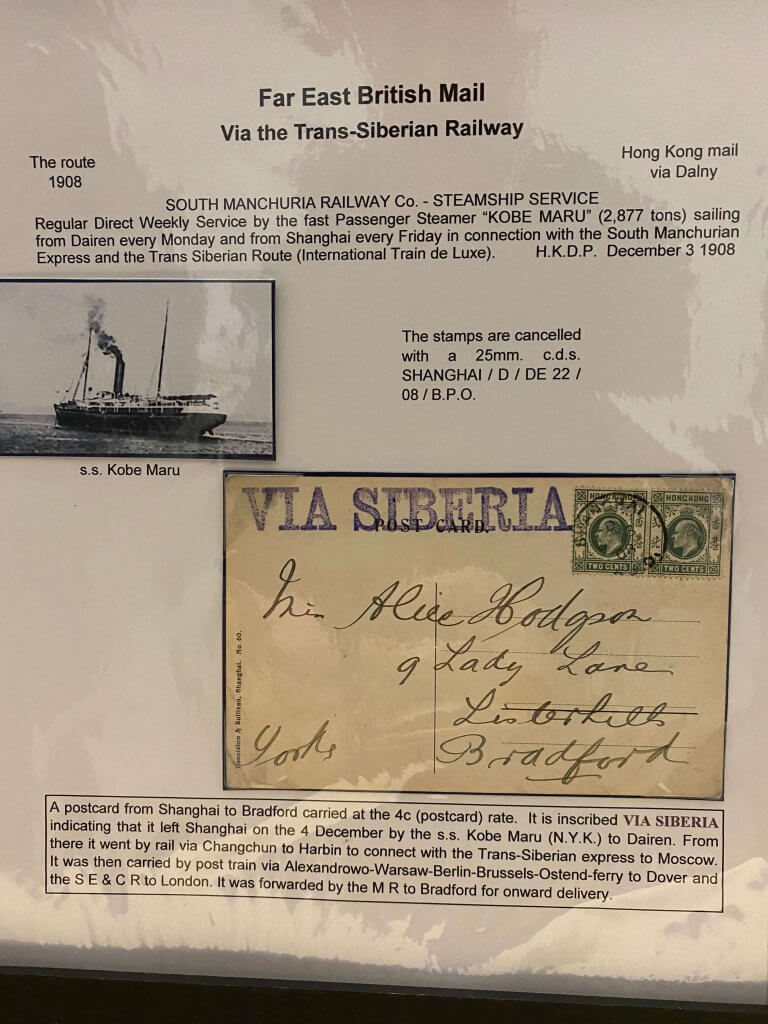 Far East British Mail
Via the Trans-Siberian Railway
The route
1908
Hong Kong mail
via Dalny
SOUTH MANCHURIA RAILWAY Co. - STEAMSHIP SERVICE
Regular Direct Weekly Service by the fast Passenger Steamer “KOBE MARU” (2,877 tons) sailing
from Dairen every Monday and from Shanghai every Friday in connection with the South Manchurian
Express and the Trans Siberian Route (International Train de Luxe). H.K.D.P. December 3 1908
The stamps are cancelled
with a 25mm. c.d.s.
SHANGHAI / D / DE 22 /
08 / B.P.O.
s.s. Kobe Maru
VIA SIBERIA
POST CARD.
HONG KONG
TWO CENTS
HONG KONG
TWO CENTS
Alice Hodgson
9 Lady Lane
Listerhills
Bradford
Yorks
& Sullivan, Shanghai. No. 60.
A postcard from Shanghai to Bradford carried at the 4c (postcard) rate. It is inscribed VIA SIBERIA
indicating that it left Shanghai on the 4 December by the s.s. Kobe Maru (N.Y.K.) to Dairen. From
there it went by rail via Changchun to Harbin to connect with the Trans-Siberian express to Moscow.
It was then carried by post train via Alexandrowo-Warsaw-Berlin-Brussels-Ostend-ferry to Dover and
the S E & C R to London. It was forwarded by the M R to Bradford for onward delivery.